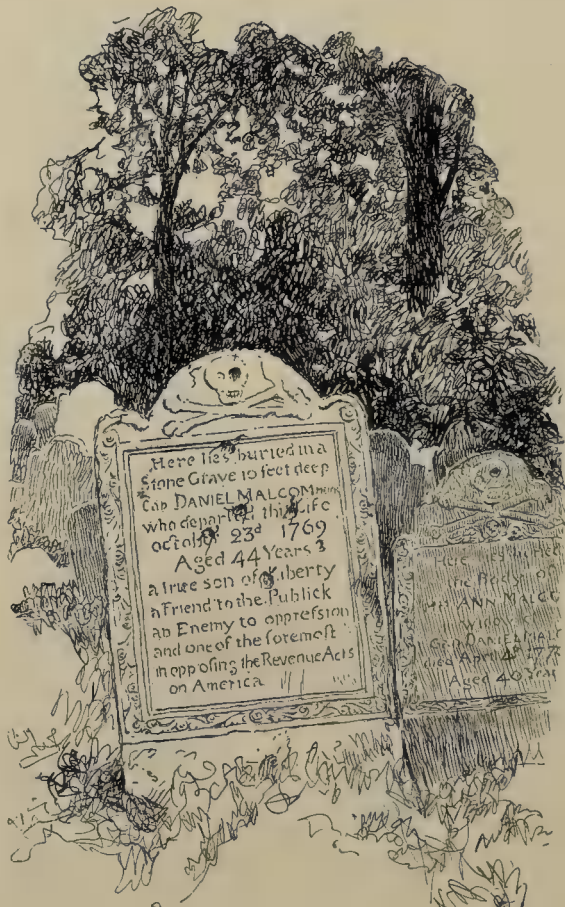 Here lies buried in a
Stone Grave 10 feet deep
Cap DANIEL MALCOM Mercht
who departed this Life
october 23d 1769
Aged 44 Years
a true son of Liberty
a Friend to the Publick
an Enemy to oppression
and one of the foremost
in opposing the Revenue Acts
on America
Here lyes
the Body of
Mrs ANN MALCO
widow
Cap DANIEL MALC
died April 4th
Aged 40 Years